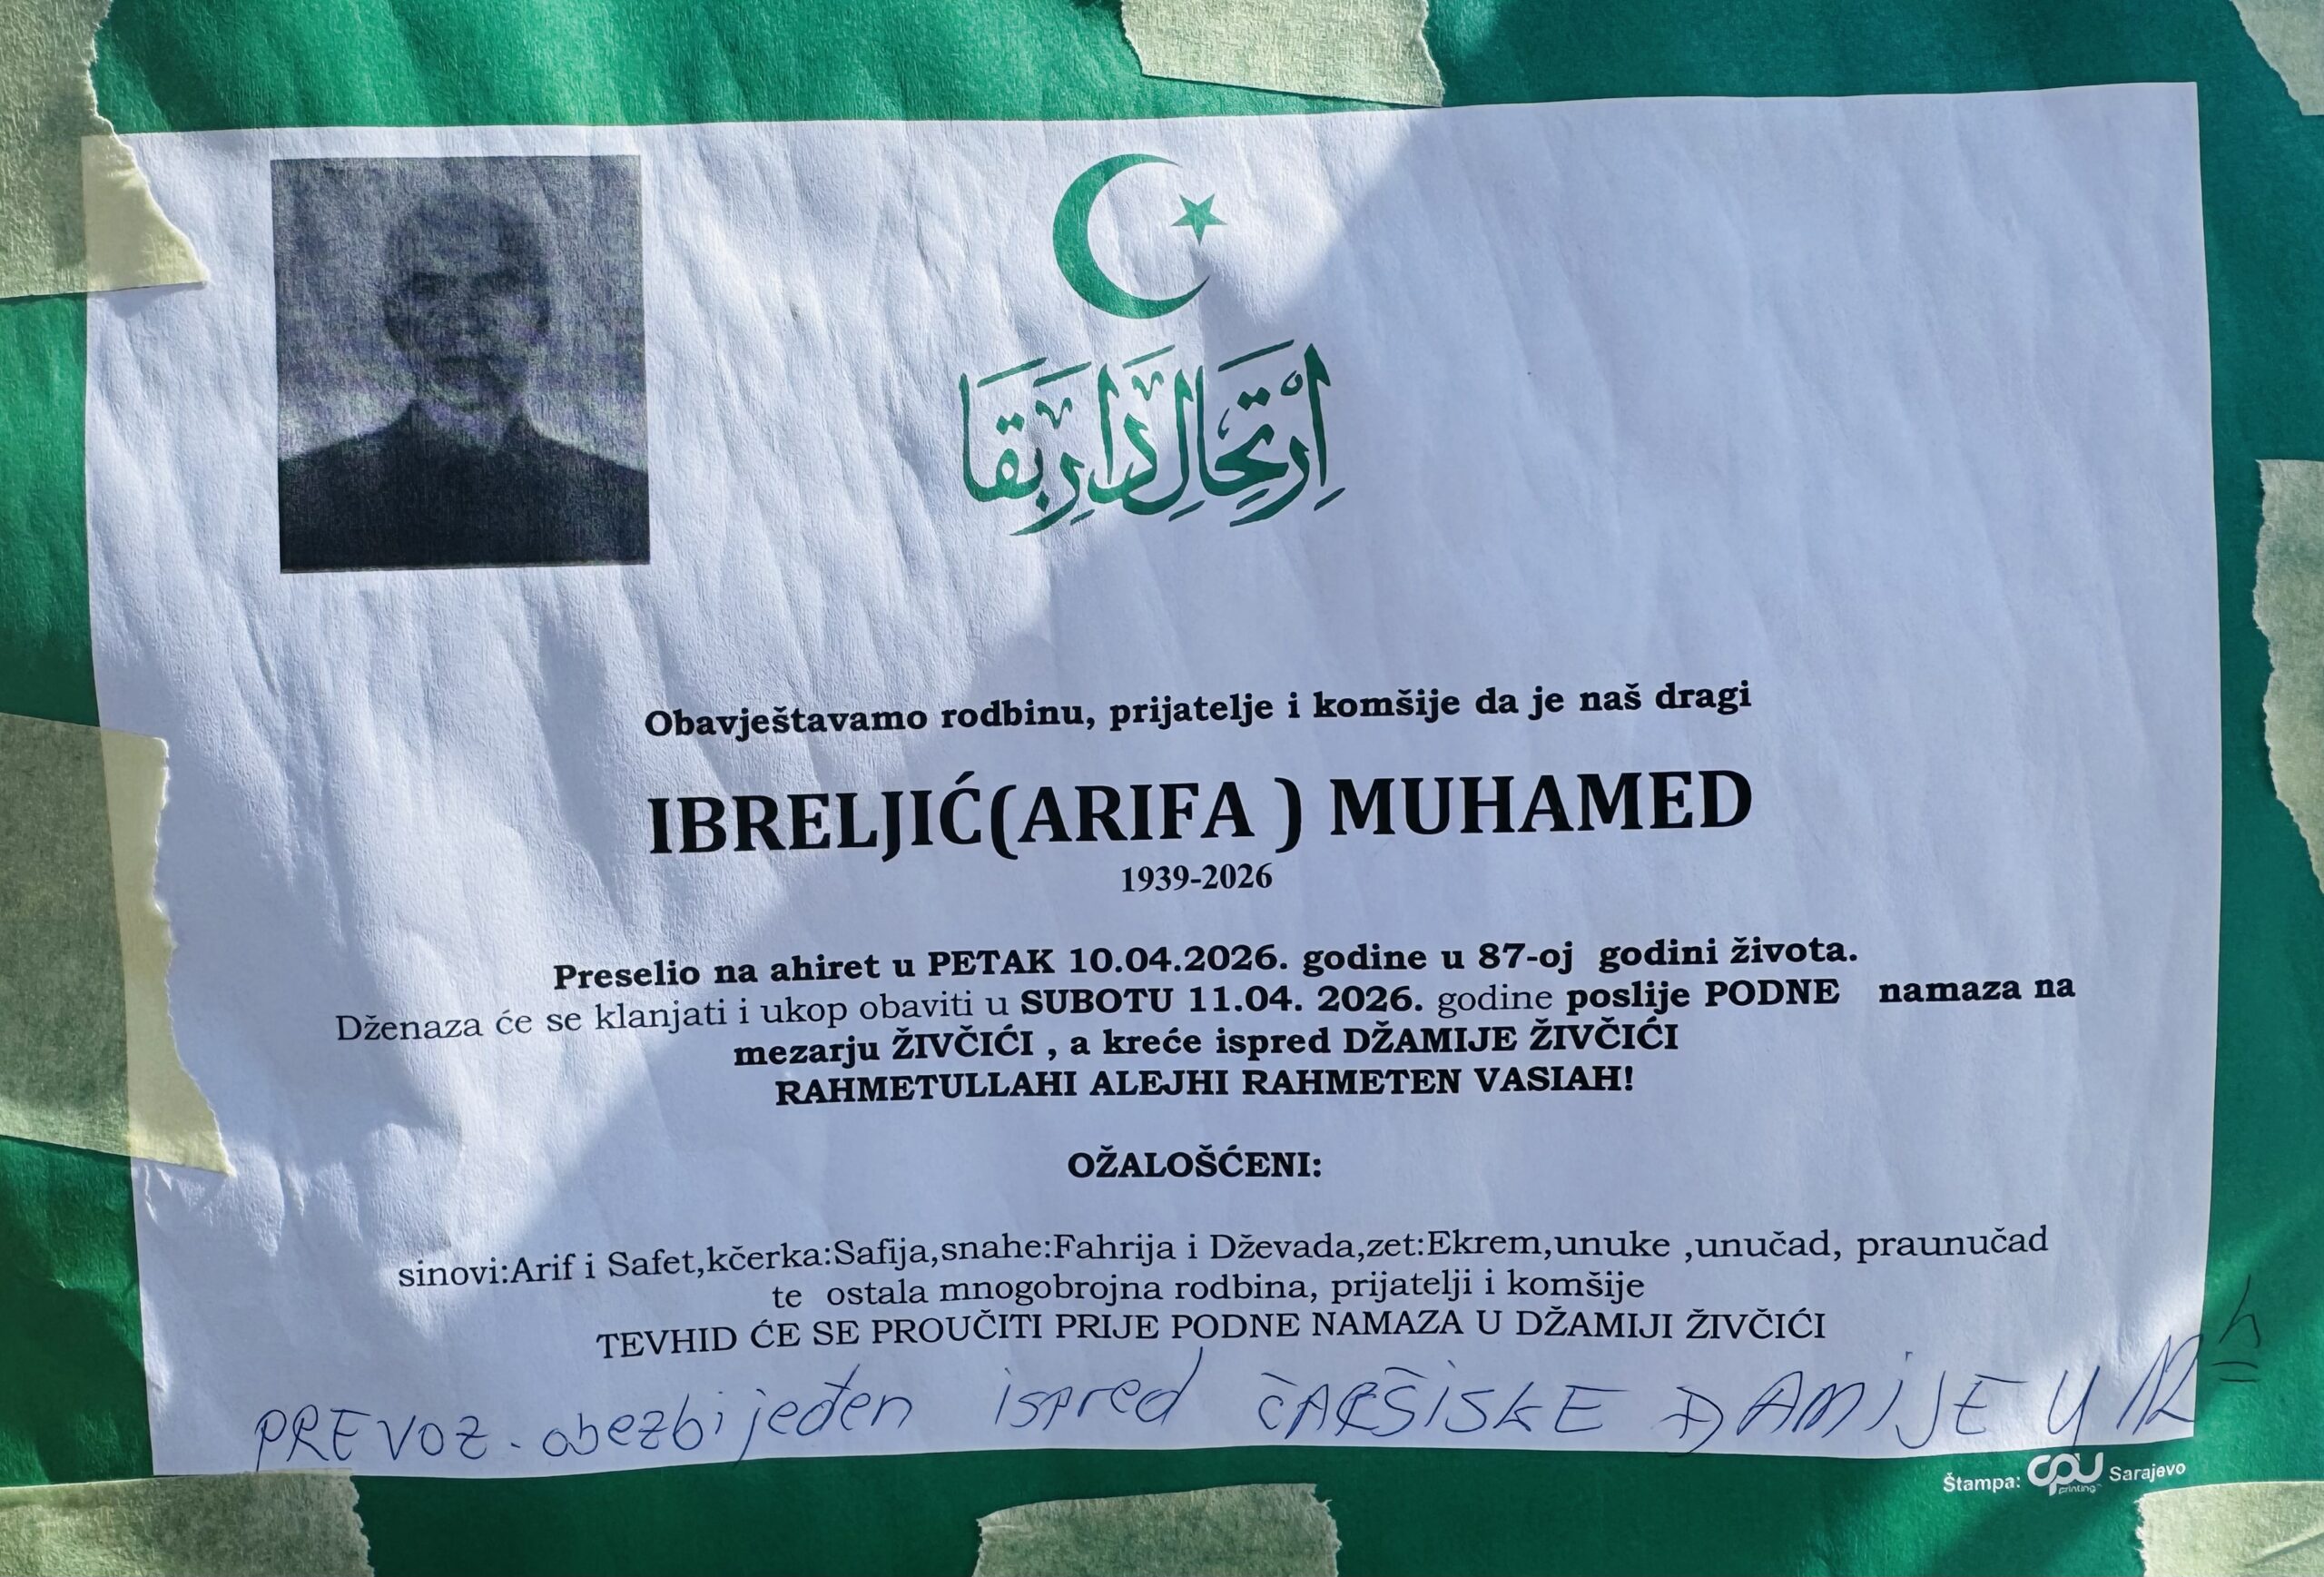 اِرْتِحَالِ دَارِ بَقَا
Obavještavamo rodbinu, prijatelje i komšije da je naš dragi
IBRELJIĆ(ARIFA ) MUHAMED
1939-2026
Preselio na ahiret u PETAK 10.04.2026. godine u 87-oj godini života.
Dženaza će se klanjati i ukop obaviti u SUBOTU 11.04. 2026. godine poslije PODNE namaza na
mezarju ŽIVČIĆI , a kreće ispred DŽAMIJE ŽIVČIĆI
RAHMETULLAHI ALEJHI RAHMETEN VASIAH!
OŽALOŠĆENI:
sinovi:Arif i Safet,kčerka:Safija,snahe:Fahrija i Dževada,zet:Ekrem,unuke ,unučad, praunučad
te ostala mnogobrojna rodbina, prijatelji i komšije
TEVHID ĆE SE PROUČITI PRIJE PODNE NAMAZA U DŽAMIJI ŽIVČIĆI
PREVOZ - obezbijeđen ispred ČARŠISKE ĐAMIJE U 12 h
Štampa: CPU printing Sarajevo